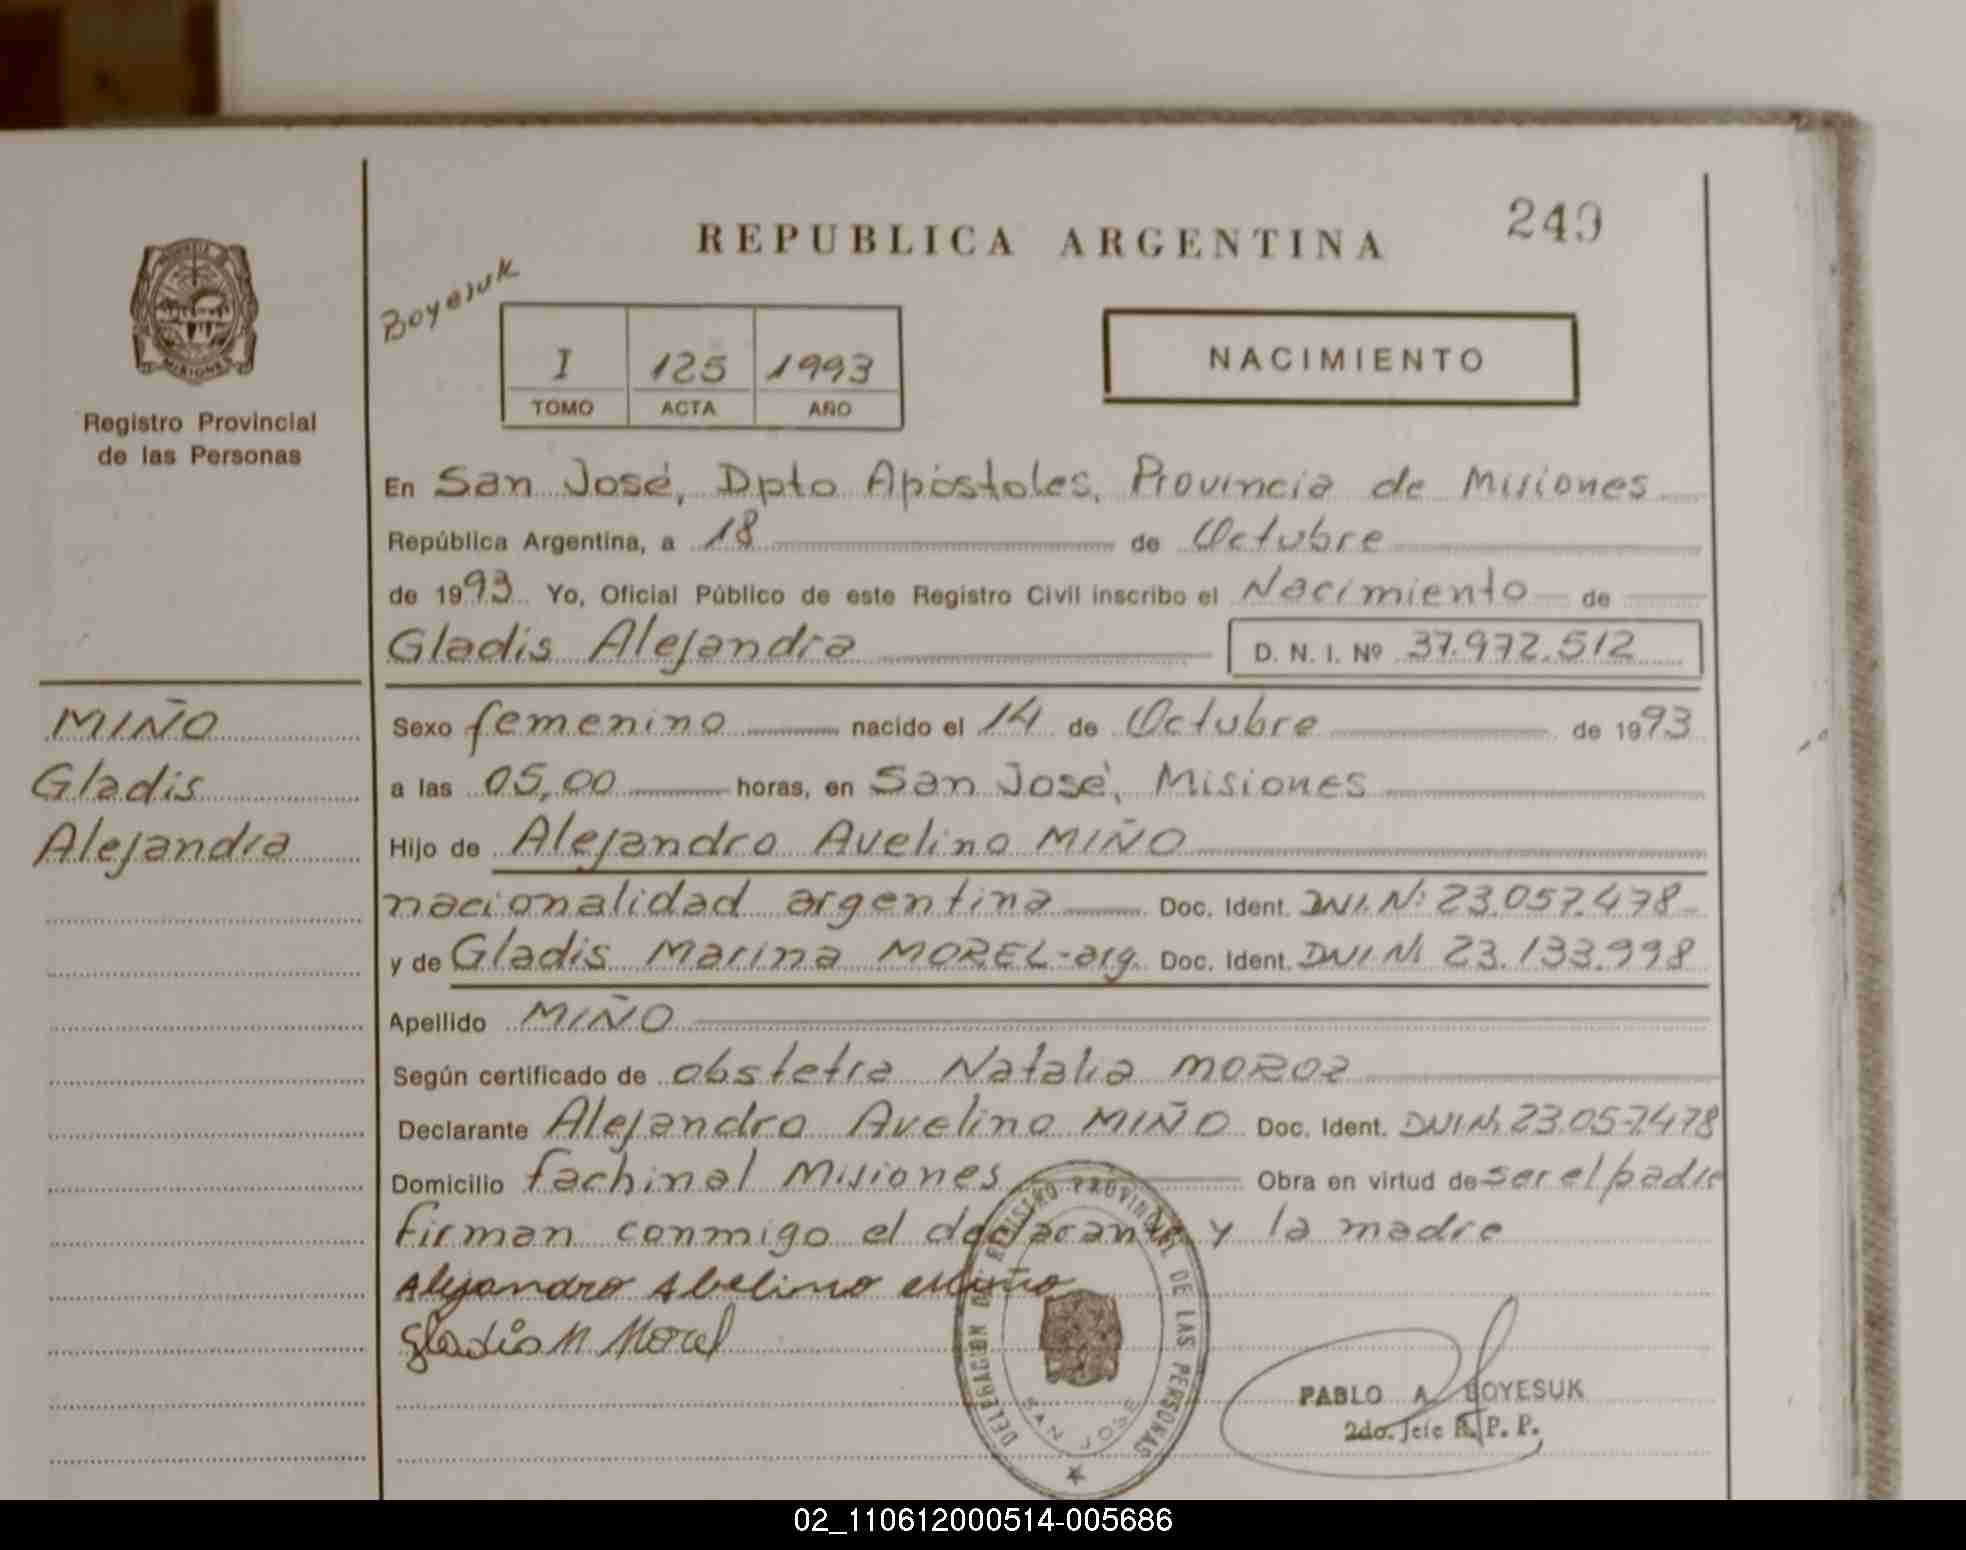 REPUBLICA ARGENTINA
249
Boyesuk
I 125 1993
TOMO ACTA AÑO
NACIMIENTO
MISIONES
Registro Provincial
de las Personas
En San José, Dpto Apóstoles, Provincia de Misiones
República Argentina, a 18 de Octubre
de 1993 Yo, Oficial Público de este Registro Civil inscribo el Nacimiento de
Gladis Alejandra D. N. I. Nº 37.972.512
MIÑO
Gladis
Alejandra
Sexo femenino nacido el 14 de Octubre de 1993
a las 05,00 horas, en San José, Misiones
Hijo de Alejandro Avelino MIÑO
nacionalidad argentina Doc. Ident. DNI.Nº 23.057.478
y de Gladis Marina MOREL-arg. Doc. Ident. DNI Nº 23.133.998
Apellido MIÑO
Según certificado de obstetra Natalia MOROZ
Declarante Alejandro Avelino MIÑO Doc. Ident. DNI Nº 23.057.478
Domicilio fachinal Misiones Obra en virtud de ser el padre
firman conmigo el declarante y la madre
Alejandro Abelino Miño
Gladis M Morel
DELEGACION DEL REGISTRO PROVINCIAL DE LAS PERSONAS
SAN JOSE
PABLO A. BOYESUK
2do. Jefe R. P. P.
02_110612000514-005686